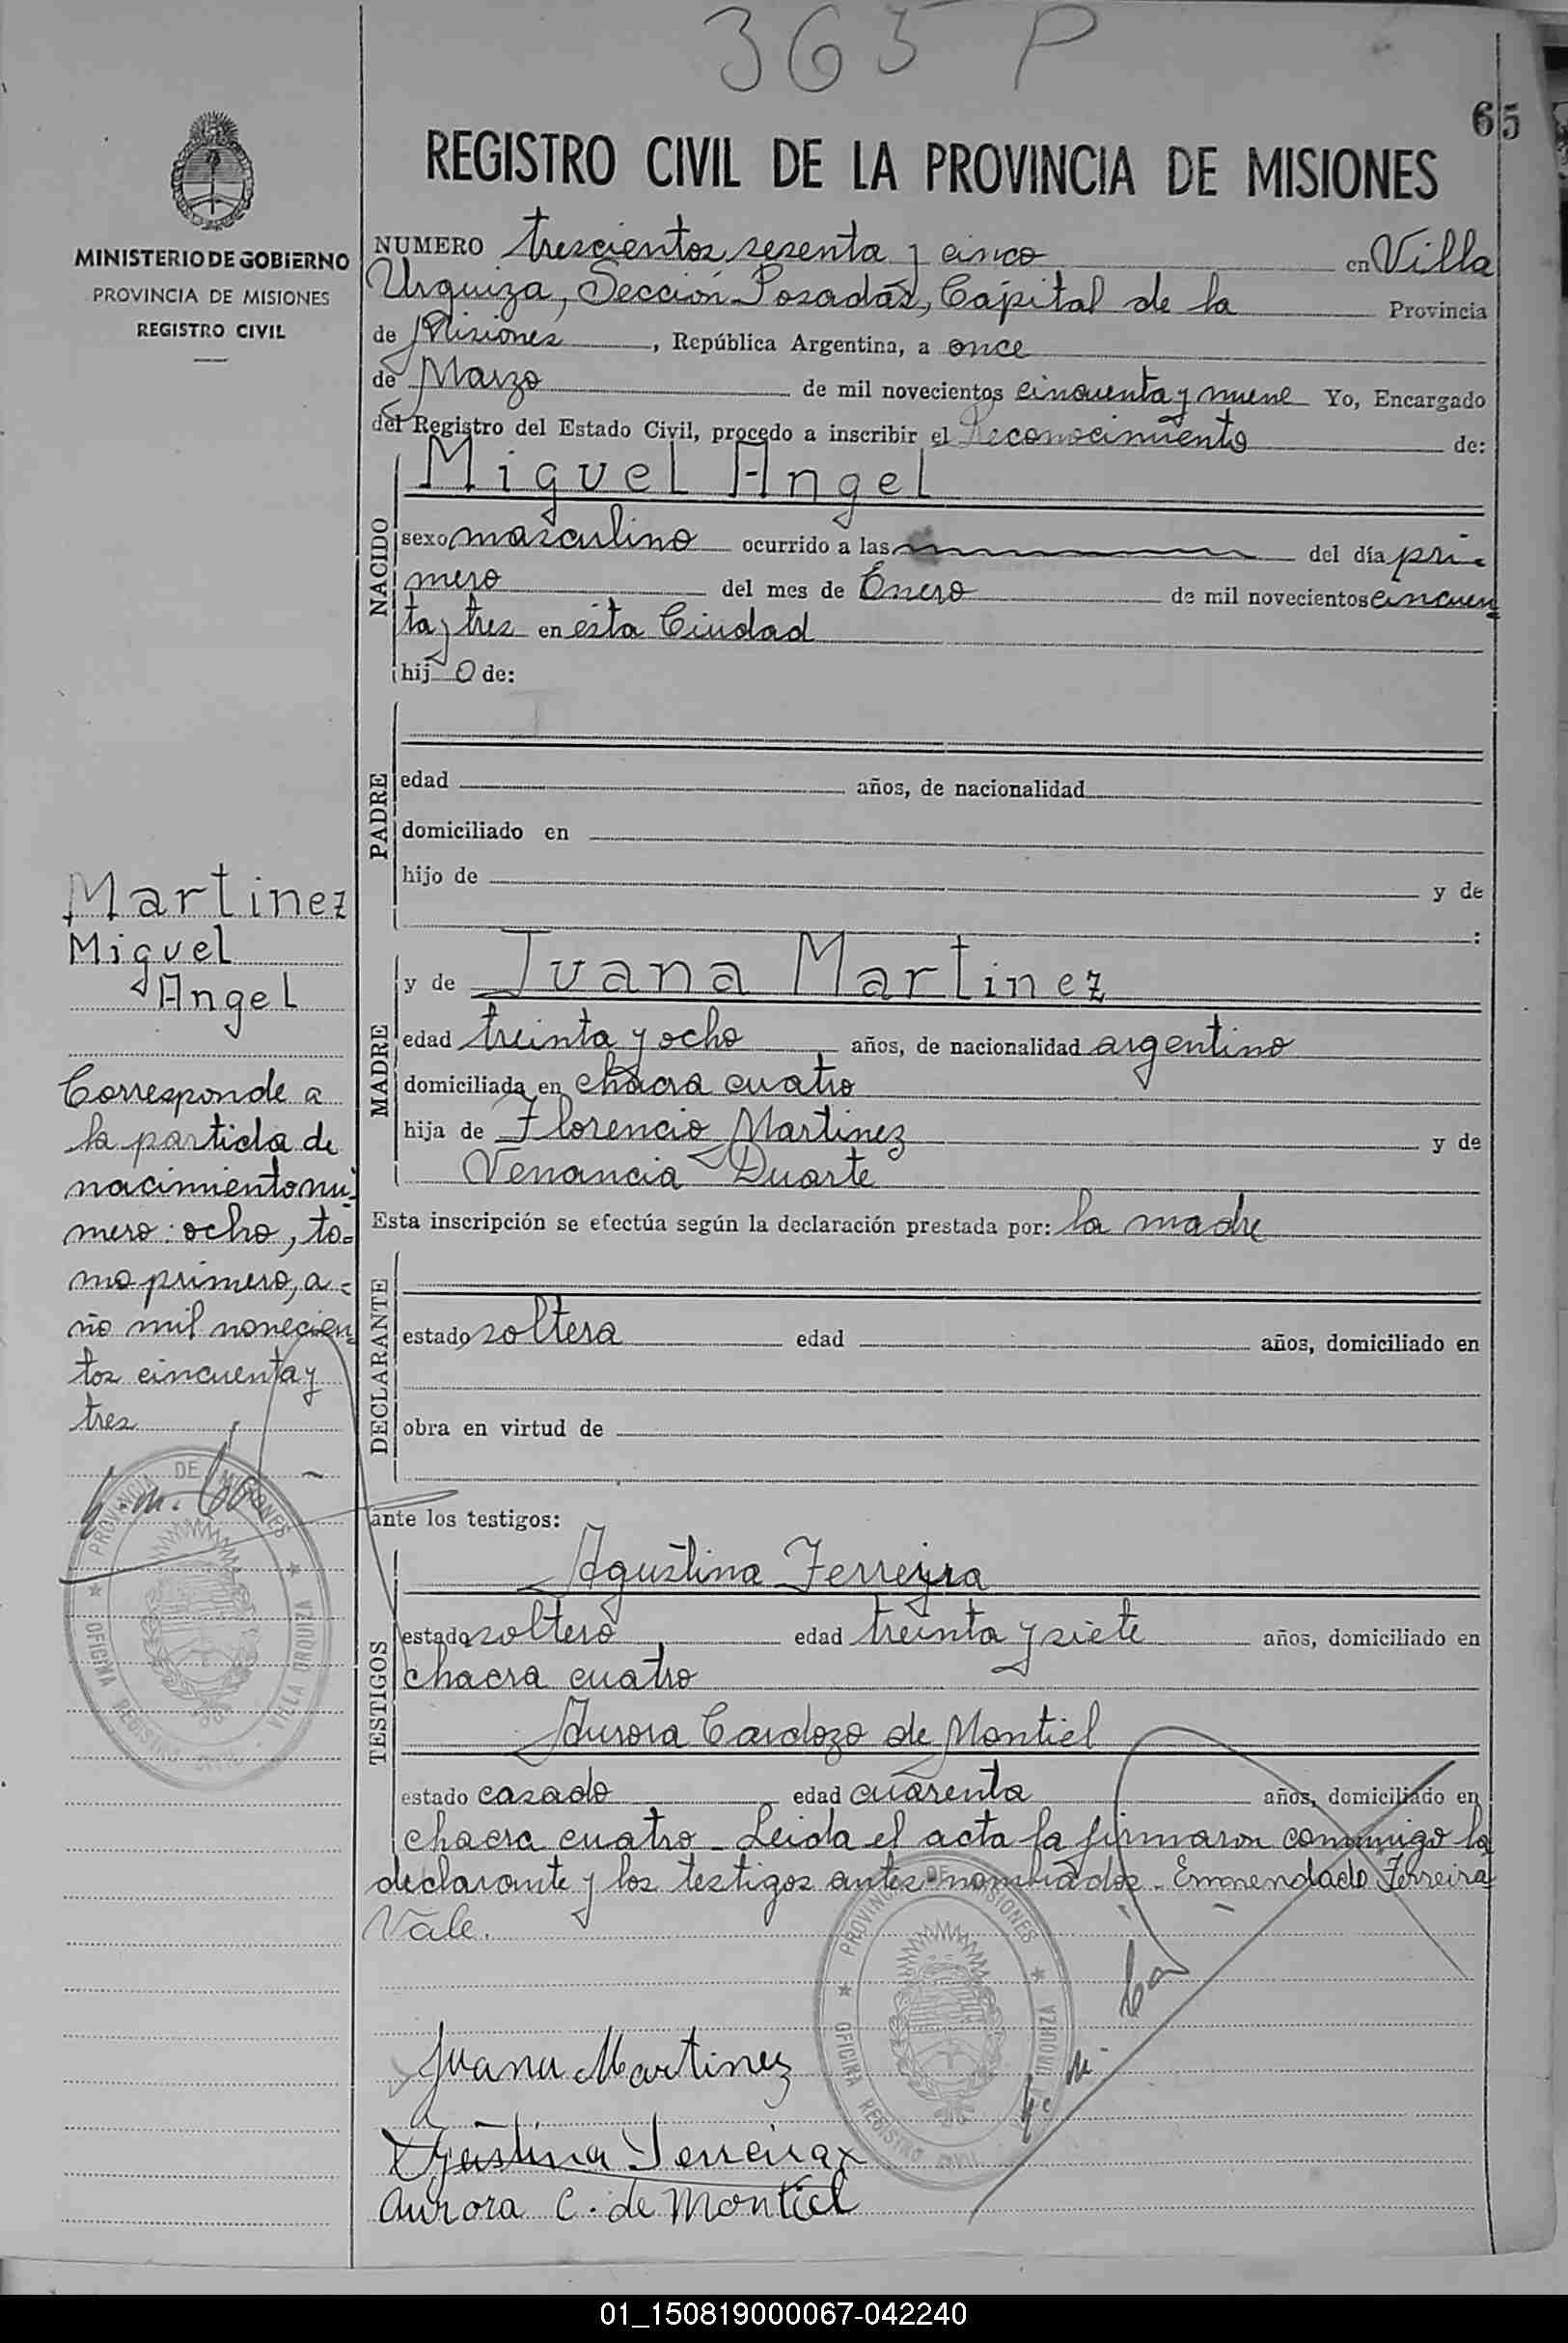 365 P
65
REGISTRO CIVIL DE LA PROVINCIA DE MISIONES
MINISTERIO DE GOBIERNO
PROVINCIA DE MISIONES
REGISTRO CIVIL
NUMERO trescientos sesenta y cinco en Villa
Urquiza, Sección Posadas, Capital de la Provincia
de Misiones, República Argentina, a once
de Marzo de mil novecientos cincuenta y nueve Yo, Encargado
del Registro del Estado Civil, procedo a inscribir el Reconocimiento de:
NACIDO
Miguel Angel
sexo masculino ocurrido a las del día pri-
mero del mes de Enero de mil novecientos cincuen
ta y tres en esta Ciudad
hij o de:
PADRE
edad años, de nacionalidad
domiciliado en
hijo de y de
:
Martinez
Miguel
Angel
Corresponde a
la partida de
nacimiento nu-
mero: ocho, to=
mo primero, a=
ño mil novecien
tos cincuenta y
tres
MADRE
y de Juana Martinez
edad treinta y ocho años, de nacionalidad argentino
domiciliada en chacra cuatro
hija de Florencio Martinez y de
Venancia Duarte
Esta inscripción se efectúa según la declaración prestada por: la madre
DECLARANTE
estado soltera edad años, domiciliado en
obra en virtud de
ante los testigos:
PROVINCIA DE MISIONES
OFICINA REGISTRO CIVIL VILLA URQUIZA
TESTIGOS
Agustina Ferreyra
estado soltero edad treinta y siete años, domiciliado en
chacra cuatro
Aurora Cardozo de Montiel
estado casado edad cuarenta años, domiciliado en
chacra cuatro - Leida el acta la firmaron conmigo la
declarante y los testigos antes nombrados - Enmendado Ferreira
Vale.
PROVINCIA DE MISIONES
OFICINA REGISTRO CIVIL VILLA URQUIZA
Juana Martinez
Agustina Ferreira
Aurora C. de Montiel
01_150819000067-042240